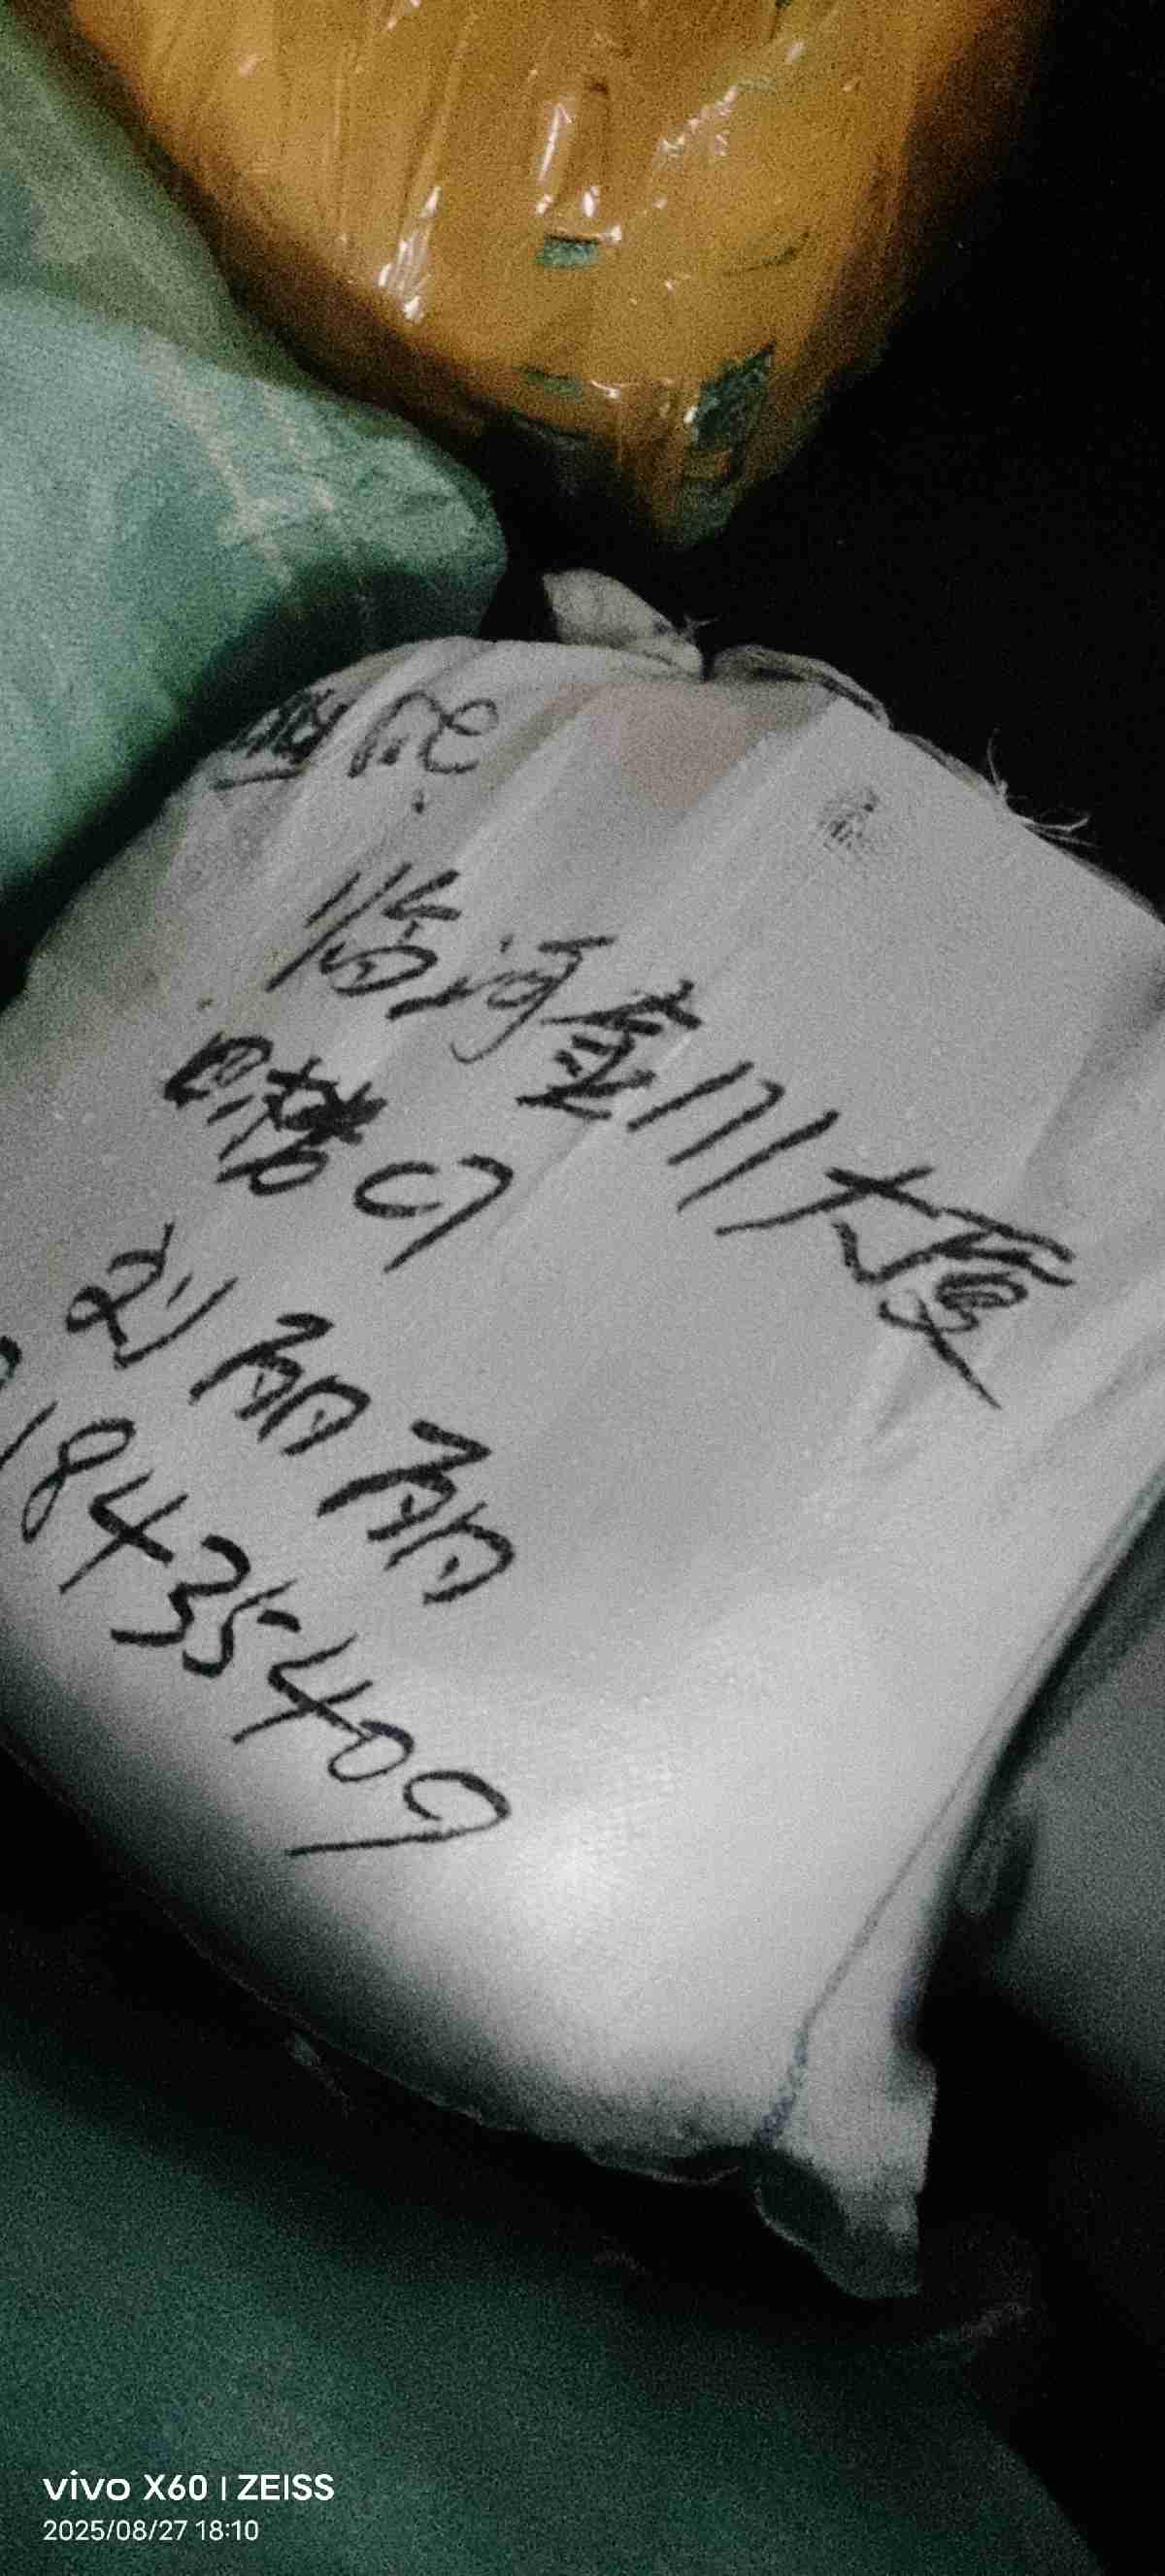 临河金川大厦
四楼C9
刘丽丽
18435409
vivo X60 | ZEISS
2025/08/27 18:10